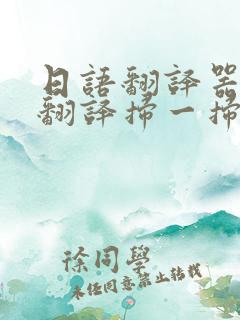 日語翻譯器
翻譯掃一掃
徐同學
未經同意禁止轉載